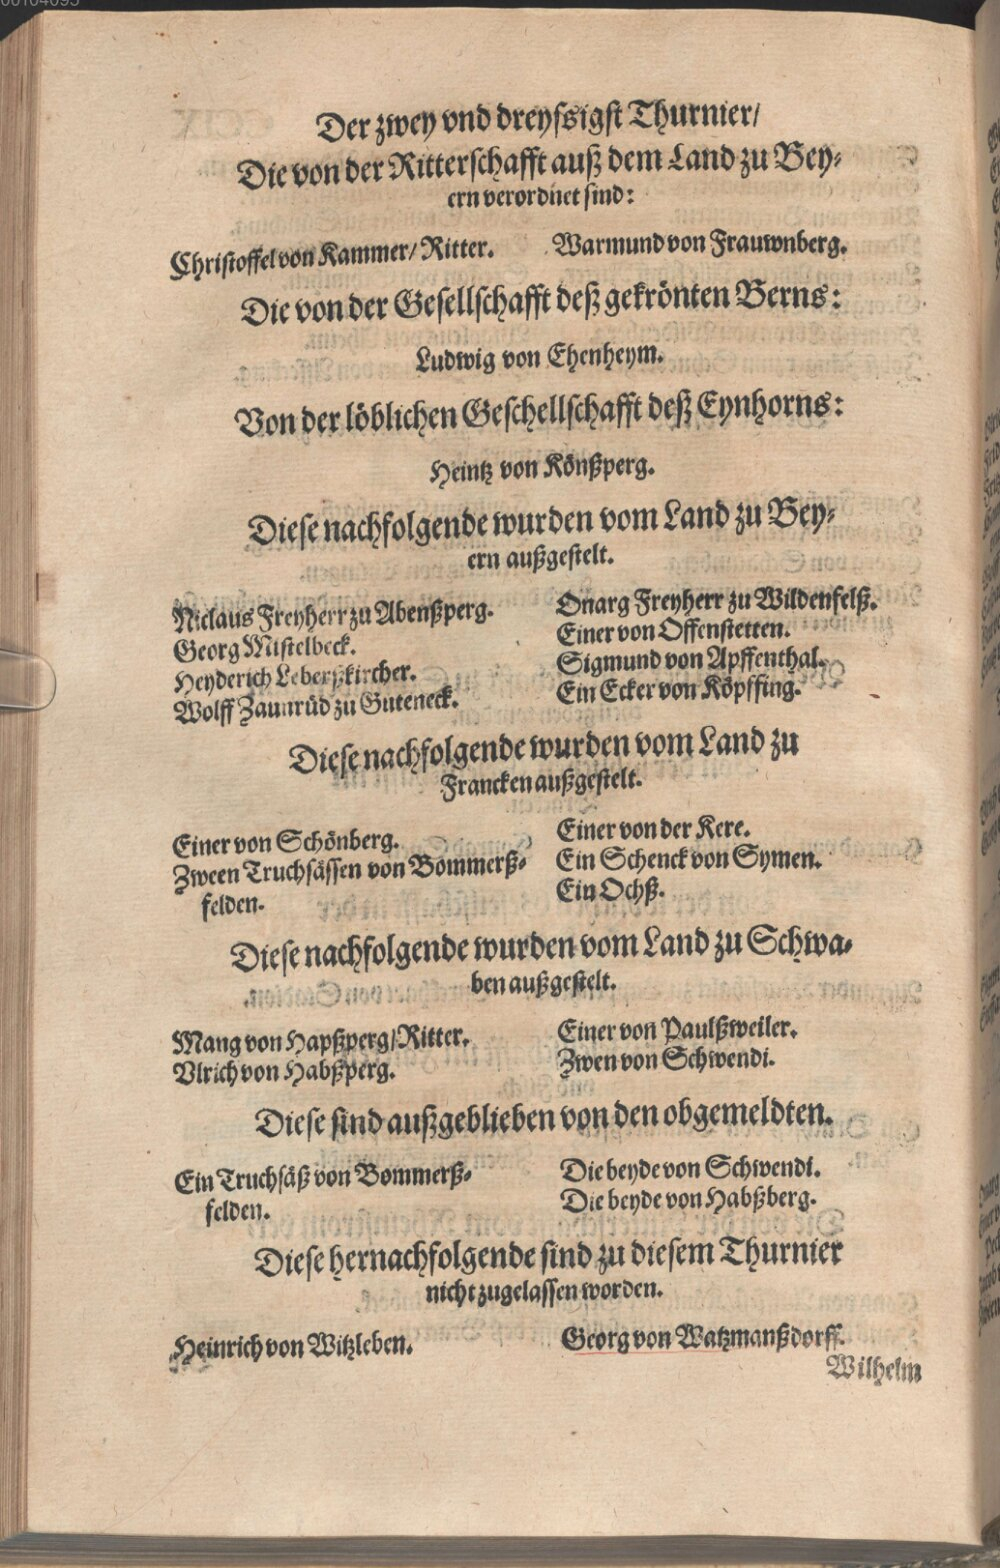 00104095
Der zwey vnd dreyssigst Thurnier/
Die von der Ritterschafft auß dem Land zu Bey-
ern verordnet sind:
Christoffel von Kammer/ Ritter.
Warmund von Frauwnberg.
Die von der Gesellschafft deß gekrönten Berns:
Ludwig von Ehenheym.
Von der löblichen Geschellschafft deß Eynhorns:
Heintz von Könßperg.
Diese nachfolgende wurden vom Land zu Bey-
ern außgestelt.
Niclaus Freyherr zu Abenßperg.
Georg Mistelbeck.
Heyderich Leberßkircher.
Wolff Zaunrüd zu Guteneck.
Onarg Freyherr zu Wildenfelß.
Einer von Offenstetten.
Sigmund von Apffenthal.
Ein Ecker von Köpffing.
Diese nachfolgende wurden vom Land zu
Francken außgestelt.
Einer von Schönberg.
Zween Truchsässen von Bommerß-
felden.
Einer von der Kere.
Ein Schenck von Symen.
Ein Ochß.
Diese nachfolgende wurden vom Land zu Schwa-
ben außgestelt.
Mang von Hapßperg/ Ritter.
Vlrich von Habßperg.
Einer von Paulßweiler.
Zwen von Schwendi.
Diese sind außgeblieben von den obgemeldten.
Ein Truchsäß von Bommerß-
felden.
Die beyde von Schwendi.
Die beyde von Habßberg.
Diese hernachfolgende sind zu diesem Thurnier
nicht zugelassen worden.
Heinrich von Witzleben.
Georg von Watzmanßdorff.
Wilhelm